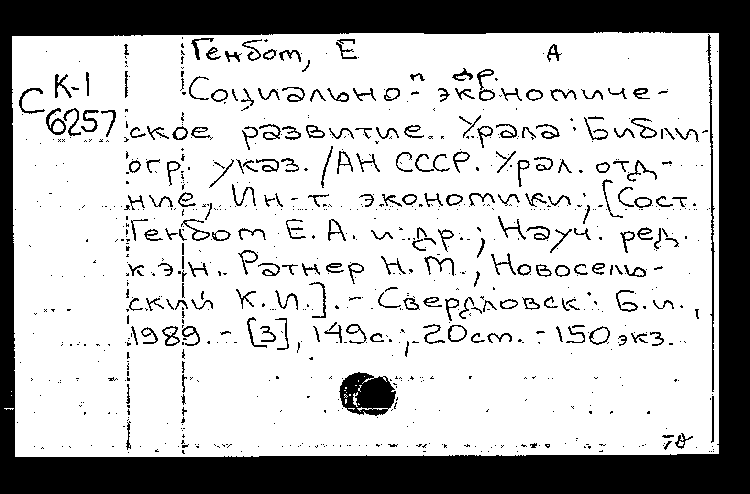 Генбот, Е А
п др.
К-1 Социально-экономиче-
С 6257 ское развитие Урала: Библи-
огр. указ. /АН СССР. Урал. отд-
ние, Ин-т экономики; [Сост.
Генбот Е.А. и др.; Науч. ред.
к.э.н. Ратнер Н.М., Новосель-
ский К.И.]. - Свердловск: Б.и.,
1989. - [3], 149с.; 20см. - 150экз.